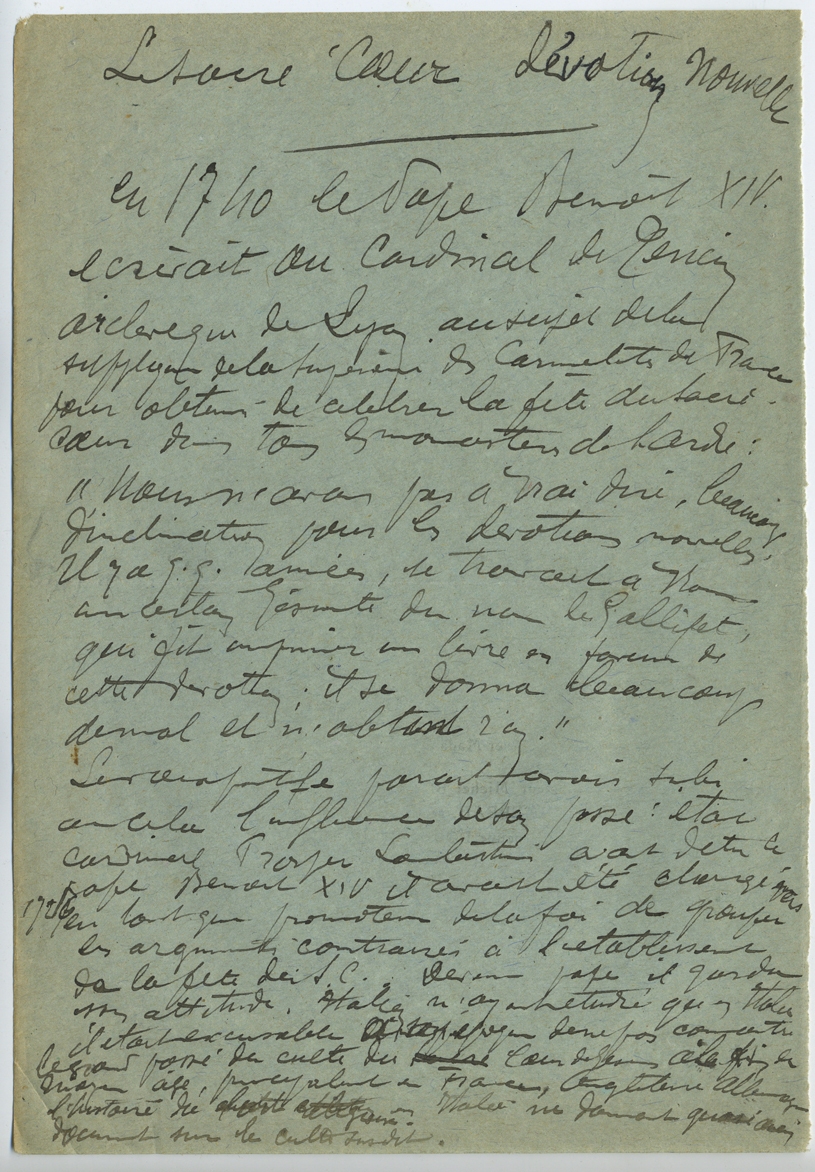 Le Sacré Cœur Dévotion Nouvelle
en 1740 le Pape Benoît XIV.
ecrivait au Cardinal de Tencin
archevêque de Lyon au sujet de la
supplique de la Supérieure des Carmelites de France
pour obtenir de célébrer la fête du Sacré-
Cœur dans tous les monastères de l'ordre :
" Nous n'avons pas à vrai dire, beaucoup
d'inclination pour les dévotions nouvelles.
Il y a q.q. années, se trouvait à Rome
un certain Jésuite du nom de Gallifet,
qui fit imprimer un livre en faveur de
cette devotion ; il se donna beaucoup
de mal et n'obtint rien. "
Le souverain pontife parait avoir subi
en cela l'influence de son passé : étant
cardinal Prosper Lambertini avant d'être le
pape Benoit XIV il avait été chargé vers
1726 en tant que promoteur de la foi de grouper
les arguments contraires à l'établissement
de la fête du S.C. Devenu pape il garda
son attitude. Italien n'ayant étudié qu'en Italie
il était excusable époque de ne pas connaitre
le grand passé du culte du Cœur de Jésus à la fin du
moyen âge, principalement en France, Angleterre Allemagne
l'histoire du en Italie ne donnant quasi aucun
document sur le culte susdit.